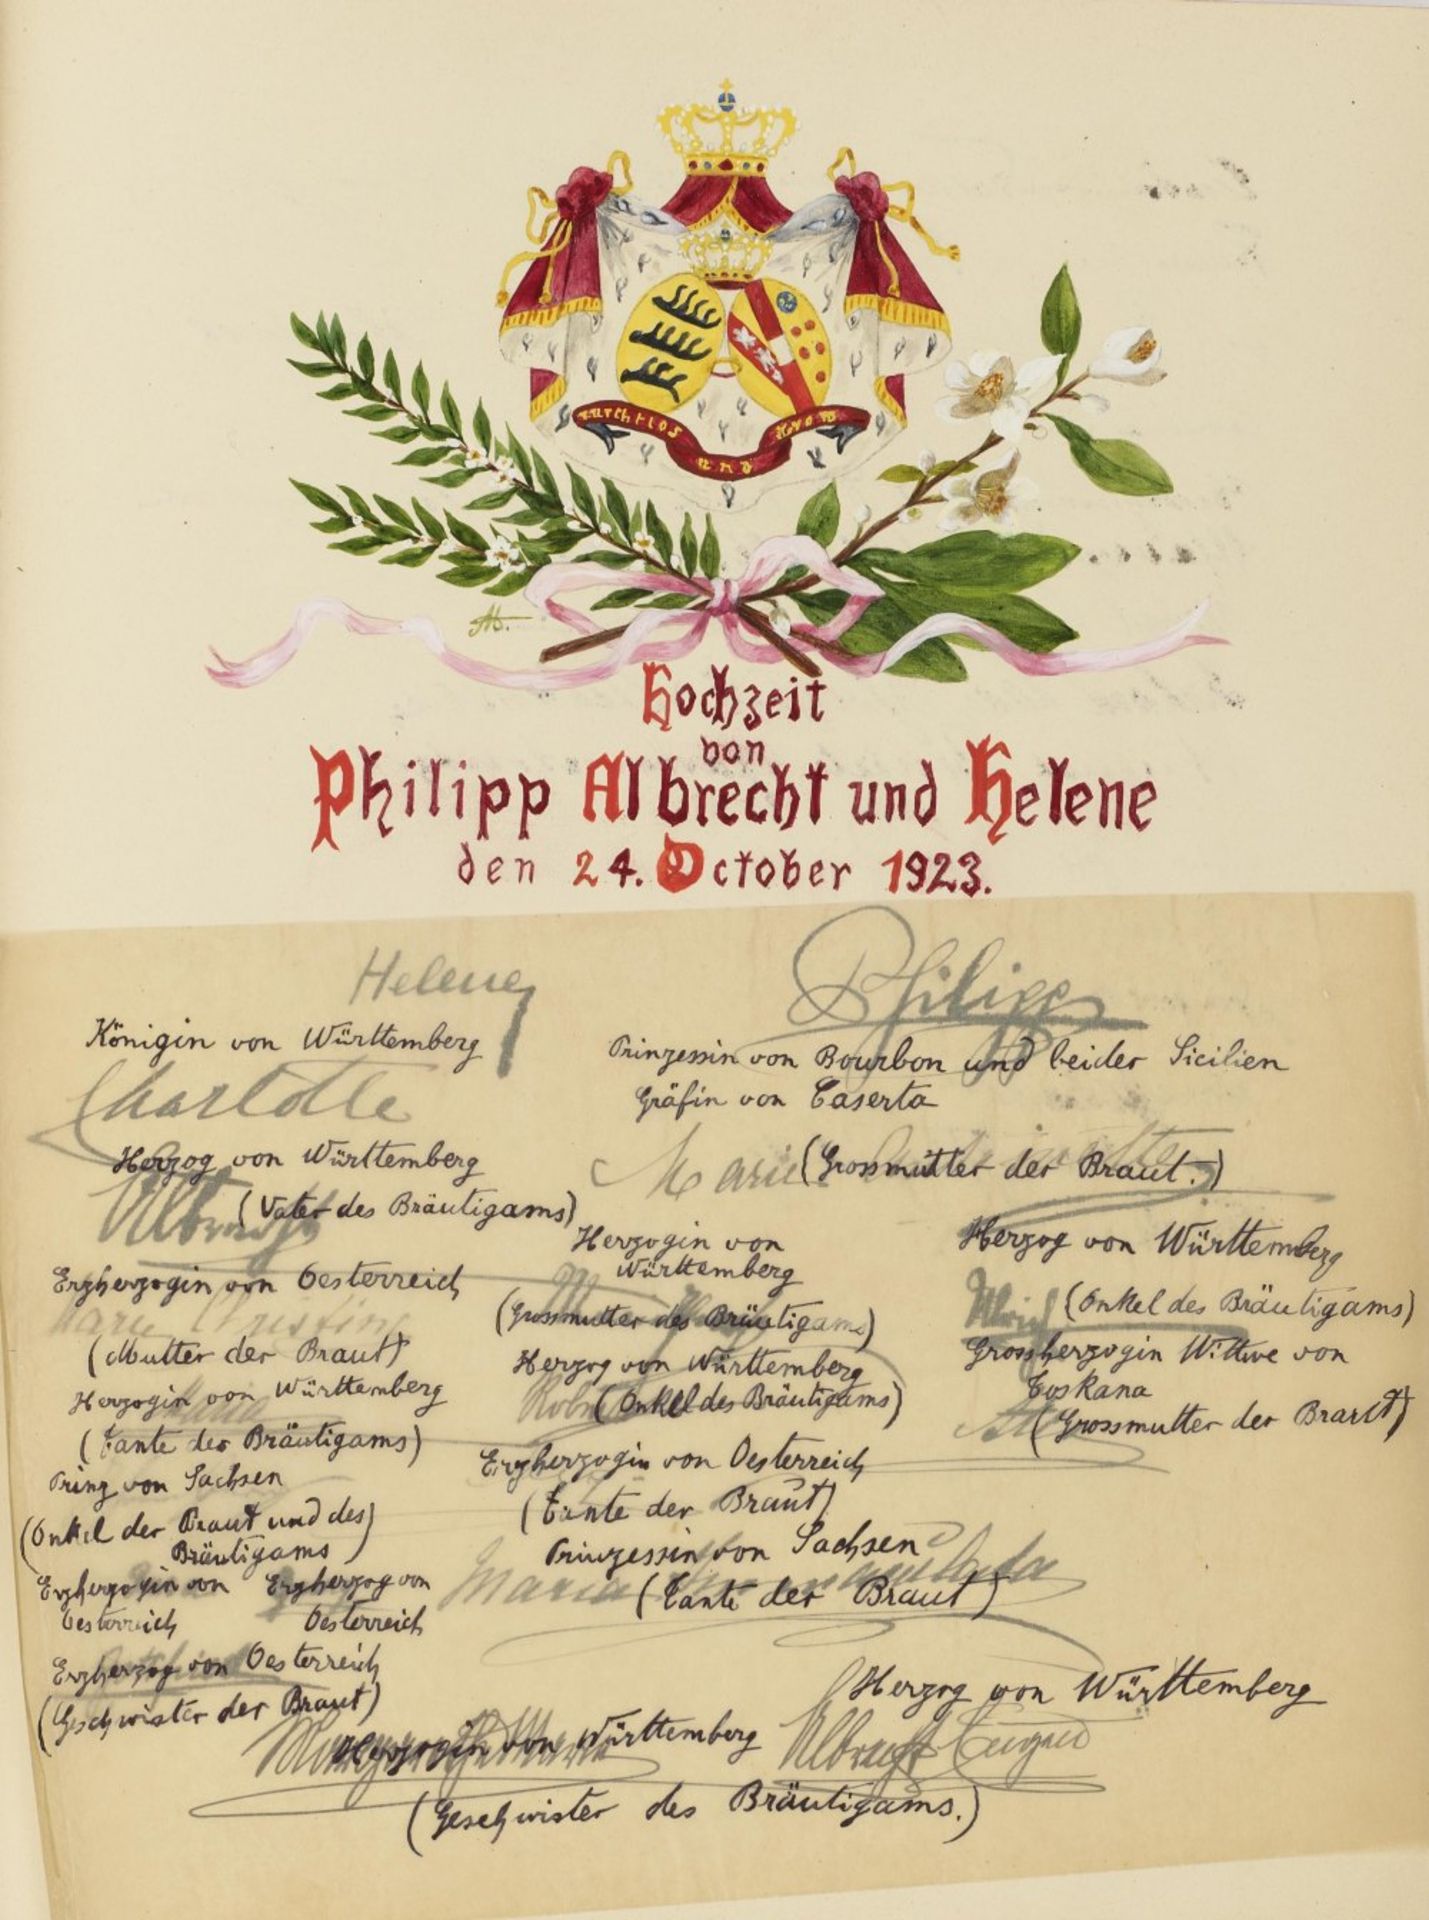 furchtlos und trew
Hochzeit
von
Philipp Albrecht und Helene
den 24. October 1923.
Helene
Philipp
Königin von Württemberg
Charlotte
Prinzessin von Bourbon und beider Sicilien
Gräfin von Caserta
Marie
(Grossmutter der Braut.)
Herzog von Württemberg
Albrecht
(Vater des Bräutigams)
Herzogin von
Württemberg
(Grossmutter des Bräutigams)
Herzog von Württemberg
Ulrich
(Onkel des Bräutigams)
Erzherzogin von Oesterreich
Marie Christine
(Mutter der Braut)
Herzog von Württemberg
Robert
(Onkel des Bräutigams)
Grossherzogin Wittwe von
Toskana
(Grossmutter der Braut)
Herzogin von Württemberg
(Tante des Bräutigams)
Erzherzogin von Oesterreich
(Tante der Braut)
Prinz von Sachsen
(Onkel der Braut und des
Bräutigams)
Prinzessin von Sachsen
Maria Immaculata
(Tante der Braut)
Erzherzogin von
Oesterreich
Erzherzog von
Oesterreich
Erzherzog von Oesterreich
(Geschwister der Braut)
Herzogin von Württemberg
Herzog von Württemberg
Albrecht Eugen
(Geschwister des Bräutigams.)